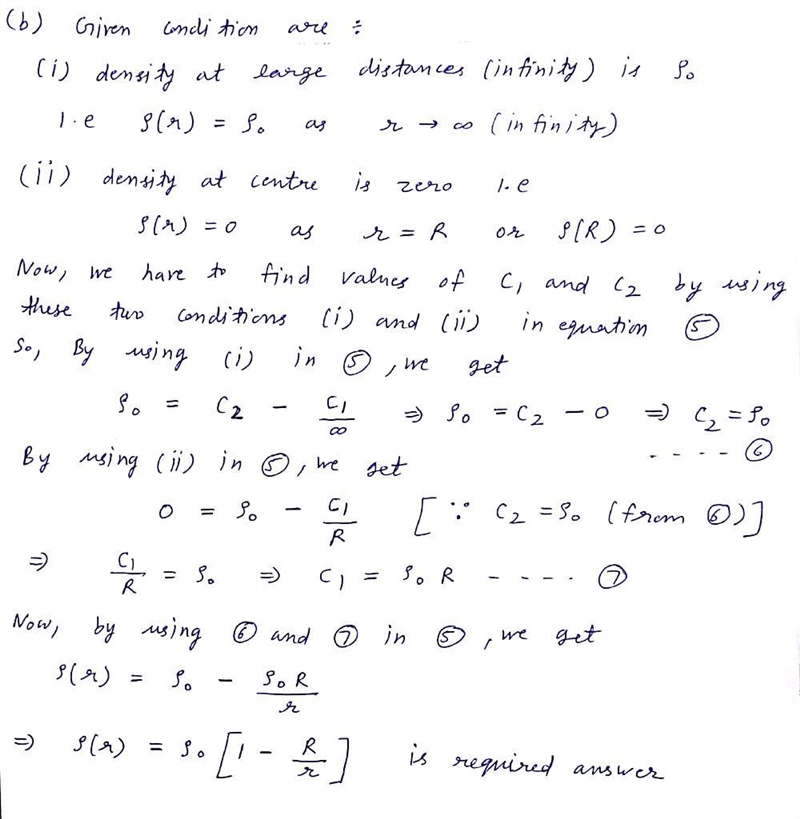 (b) Given condition are ÷
(i) density at large distances (infinity) is ρ₀
i.e ρ(r) = ρ₀ as r → ∞ (infinity)
(ii) density at centre is zero i.e
ρ(r) = 0 as r = R or ρ(R) = 0
Now, we have to find values of C₁ and C₂ by using
these two conditions (i) and (ii) in equation ⑤
So, By using (i) in ⑤, we get
ρ₀ = C₂ - C₁/∞ ⇒ ρ₀ = C₂ - 0 ⇒ C₂ = ρ₀
- - - - ⑥
By using (ii) in ⑤, we get
0 = ρ₀ - C₁/R [∵ C₂ = ρ₀ (from ⑥)]
⇒ C₁/R = ρ₀ ⇒ C₁ = ρ₀ R - - - - ⑦
Now, by using ⑥ and ⑦ in ⑤, we get
ρ(r) = ρ₀ - ρ₀ R/r
⇒ ρ(r) = ρ₀ [1 - R/r] is required answer